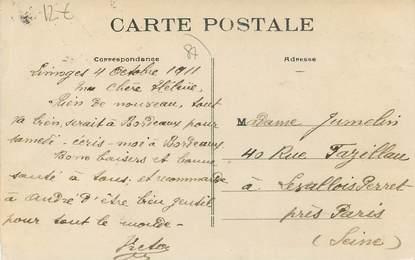 12 €
87
CARTE POSTALE
Correspondance
Adresse
Limoges 4 Octobre 1911
Ma Chère Hélène,
Rien de nouveau, tout
va bien, serai à Bordeaux pour
samedi - écris-moi à Bordeaux
Bons baisers et bonne
santé à tous, et recommande
à André d'être bien gentil
pour tout le monde -
Madame Jumelin
40 Rue Fazillau
à Levallois Perret
près Paris
(Seine)